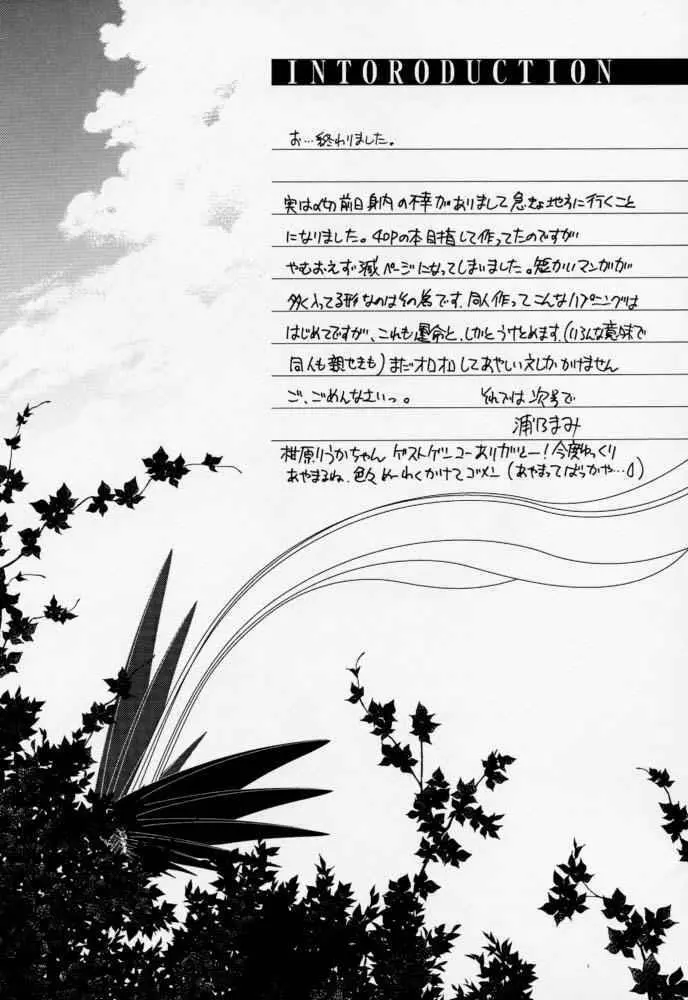 INTORODUCTION
お…終わりました。
実は〆切前日身内の不幸がありまして急きょ地方に行くこと
になりました。40Pの本目指して作ってたのですが
やもおえず減ページになってしまいました。短かいマンガが
多く入ってる形なのはその為です。同人作ってこんなハプニングは
はじめてですが、これも運命と、しかとうけとめます。(いろんな意味で
同人も親せきも)まだオロオロしてあやしいえしかかけません
ご、ごめんなさいっ。 それでは次号で
浦乃まみ
柑原りうかちゃん ゲストゲンコーありがとー!今度ゆっくり
あやまるね、色々めーわくかけてゴメン(あやまってばっかや…)